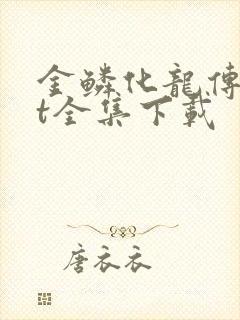 金鳞化龍傳
t全集下載
唐衣衣